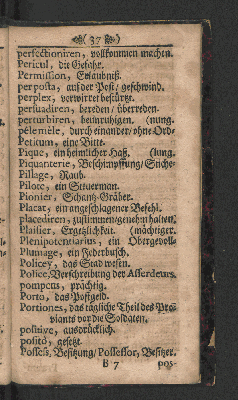 ( 37 )
perfectioniren, vollkommen machen.
Pericul, die Gefahr.
Permission, Erlaubniß.
per posta, auf der Post/ geschwind.
perplex, verwirret bestürzt.
persuadiren, bereden/ überreden.
perturbiren, beunruhigen. (nung.
pêlemêle, durch einander/ ohne Ord-
Petitum, eine Bitte.
Pique, ein heimlicher Haß. (lung.
Piquanterie, Beschimpffung/ Stiche-
Pillage, Raub.
Pilote, ein Steuerman.
Pionier, Schantz-Gräber.
Placat, ein angeschlagener Befehl.
placediren, zusammen/ genehm halten.
Plaisier, Ergetzlichkeit. (mächtiger.
Plenipotentiarius, ein Obergevoll-
Plumage, ein Federbusch.
Policey, das Stadwesen.
Police, Verschreibung der Asseurdeurs.
pompeus, prächtig.
Porto, das Postgeld.
Portiones, das tägliche Theil des Pro-
viants vor die Soldaten.
positive, ausdrücklich.
positò, gesetzt.
Possess, Besitzung/ Possessor, Besitzer.
B 7 pos-